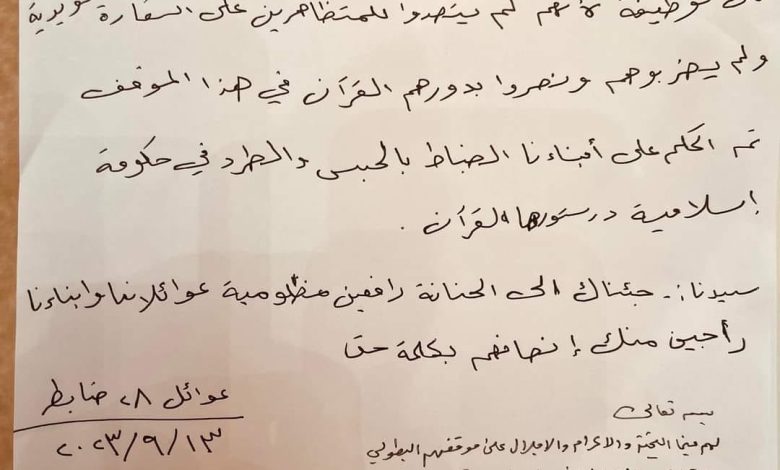 وظيفة لأنهم لم يتصدوا للمتظاهرين على السفارة
ولم يضربوهم ونصروا بدورهم القرآن في هذا الموقف
تم الحكم على أبناءنا الضباط بالحبس والطرد في حكومة
إسلامية دستورها القرآن .
سيدنا :- جئناك الى الحنانة رافعين مظلومية عوائلنا وابناءنا
راجين منك إنصافهم بكلمة حق
عوائل ٢٨ ضابط
٢٠٢٣/٩/١٣
بسمه تعالى
لهم منا التحية والاكرام والاجلال على موقفهم البطولي